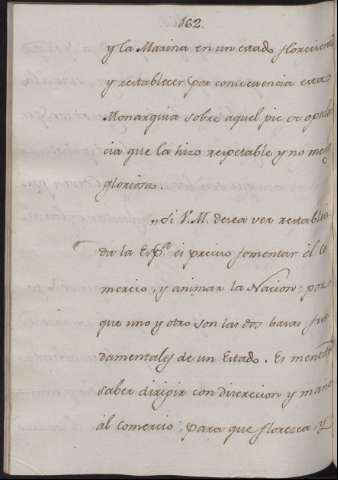 162.
y la Marina en un estado floreciente
y restablecer por consecuencia esta
Monarquia sobre aquel pie de opulen
cia que la hizo respetable y no menos
gloriosa.
„Si V. M. desea ver restableci
da la Esp.ª es preciso fomentar el Co
mercio, y animar la Nacion; por
que uno y otro son las dos bases fun
damentales de un Estado. Es menester
saber dirigir con discrecion y mano
al comercio para que floresca, y